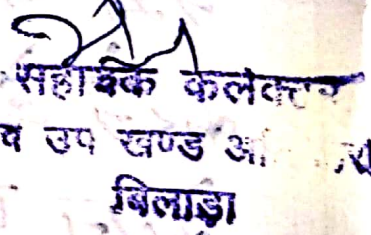 सहायक कलेक्टर
व उप खण्ड
बिलाड़ा